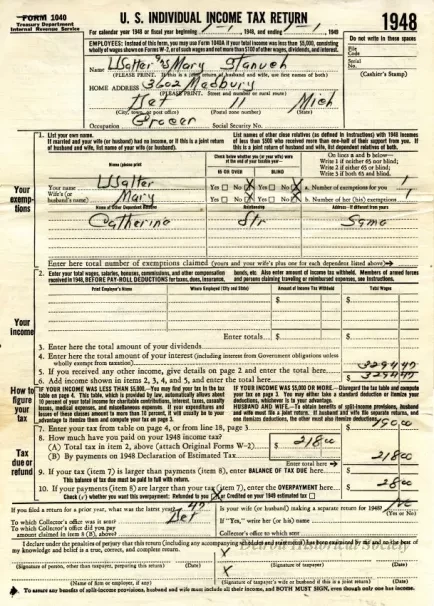 FORM 1040
Treasury Department
Internal Revenue Service
U. S. INDIVIDUAL INCOME TAX RETURN
For calendar year 1948 or fiscal year beginning , 1948, and ending , 1949
1948
EMPLOYEES: Instead of this form, you may use Form 1040A if your total income was less than $5,000, consisting
wholly of wages shown on Forms W-2, or of such wages and not more than $100 of other wages, dividends, and interest.
Do not write in these spaces
File
Code
Serial
No.
(Cashier's Stamp)
Name Walter & Mary Stanuch
(PLEASE PRINT. If this is a joint return of husband and wife, use first names of both)
HOME ADDRESS 3602 Medbury
(PLEASE PRINT. Street and number or rural route)
Det 11 Mich
(City, town, or post office) (Postal zone number) (State)
Occupation Grocer Social Security No.
Your exemptions
1. List your own name.
If married and your wife (or husband) had no income, or if this is a joint return
of husband and wife, list name of your wife (or husband).
List names of other close relatives (as defined in Instructions) with 1948 incomes
of less than $500 who received more than one-half of their support from you. If
this is a joint return of husband and wife, list dependent relatives of both.
Name (please print)
Check below whether you (or your wife) were
at the end of your taxable year—
65 OR OVER BLIND
On lines a and b below—
Write 1 if neither 65 nor blind;
Write 2 if either 65 or blind;
Write 3 if both 65 and blind.
Your name Walter Yes No X Yes No X a. Number of exemptions for you 1
Wife's (or husband's) name Mary Yes No X Yes No X b. Number of her (his) exemptions 1
Name of Other Dependent Relative Relationship Address—If different from yours
Catherine Str Same
Enter here total number of exemptions claimed (yours and your wife's plus one for each dependent listed above)
Your income
2. Enter your total wages, salaries, bonuses, commissions, and other compensation
received in 1948, BEFORE PAY-ROLL DEDUCTIONS for taxes, dues, insurance,
bonds, etc. Also enter amount of income tax withheld. Members of armed forces
and persons claiming traveling or reimbursed expenses, see Instructions.
Print Employer's Name Where Employed (City and State) Amount of Income Tax Withheld Total Wages
$ $
Enter totals $ $
3. Enter here the total amount of your dividends
4. Enter here the total amount of your interest (including interest from Government obligations unless
wholly exempt from taxation)
5. If you received any other income, give details on page 2 and enter the total here 3294 47
6. Add income shown in items 2, 3, 4, and 5, and enter the total here $ 3294 47
How to figure your tax
IF YOUR INCOME WAS LESS THAN $5,000.—You may find your tax in the tax
table on page 4. This table, which is provided by law, automatically allows about
10 percent of your total income for charitable contributions, interest, taxes, casualty
losses, medical expenses, and miscellaneous expenses. If your expenditures and
losses of these classes amount to more than 10 percent, it will usually be to your
advantage to itemize them and compute your tax on page 3.
IF YOUR INCOME WAS $5,000 OR MORE.—Disregard the tax table and compute
your tax on page 3. You may either take a standard deduction or itemize your
deductions, whichever is to your advantage.
HUSBAND AND WIFE.—To obtain benefits of split-income provisions, husband
and wife must file a joint return. If husband and wife file separate returns, and
one itemizes deductions, the other must also itemize deductions.
Tax due or refund
7. Enter your tax from table on page 4, or from line 18, page 3 $ 190 00
8. How much have you paid on your 1948 income tax?
(A) Total tax in item 2, above (attach Original Forms W-2) $
(B) By payments on 1948 Declaration of Estimated Tax 218 00
Enter total here 218 00
9. If your tax (item 7) is larger than payments (item 8), enter BALANCE OF TAX DUE here $
This balance of tax due must be paid in full with return.
10. If your payments (item 8) are larger than your tax (item 7), enter the OVERPAYMENT here $ 28 00
Check (√) whether you want this overpayment: Refunded to you or Credited on your 1949 estimated tax
If you filed a return for a prior year, what was the latest year? 47
To which Collector's office was it sent? Det
To which Collector's office did you pay
amount claimed in item 8 (B), above?
Is your wife (or husband) making a separate return for 1948? No
(Yes or No)
If "Yes," write her (or his) name
Collector's office to which sent
I declare under the penalties of perjury that this return (including any accompanying schedules and statements) has been examined by me and to the best of
my knowledge and belief is a true, correct, and complete return.
Detroit Historical Society
(Signature of person, other than taxpayer, preparing this return) (Date) (Signature of taxpayer) (Date)
(Name of firm or employer, if any) (Signature of taxpayer's wife or husband if this is a joint return) (Date)
To assure any benefits of split-income provisions, husband and wife must include all their income, and BOTH MUST SIGN, even though only one has income.